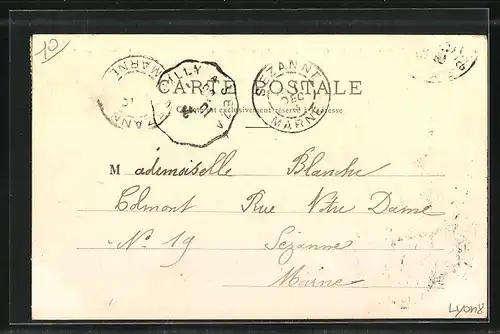 10
CARTE POSTALE
Ce côté est exclusivement réservé à l'adresse
SEZANNE
DEC
MARNE
MARNE
Mademoiselle Blanche
Colmont Rue Notre Dame
No 19 Sézanne
Marne
Lyon8